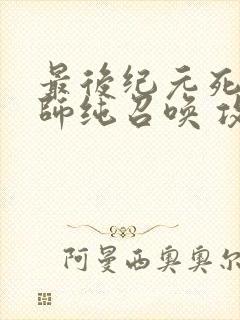 最後纪元死
師纯召唤 攻
阿曼西奥奥尔